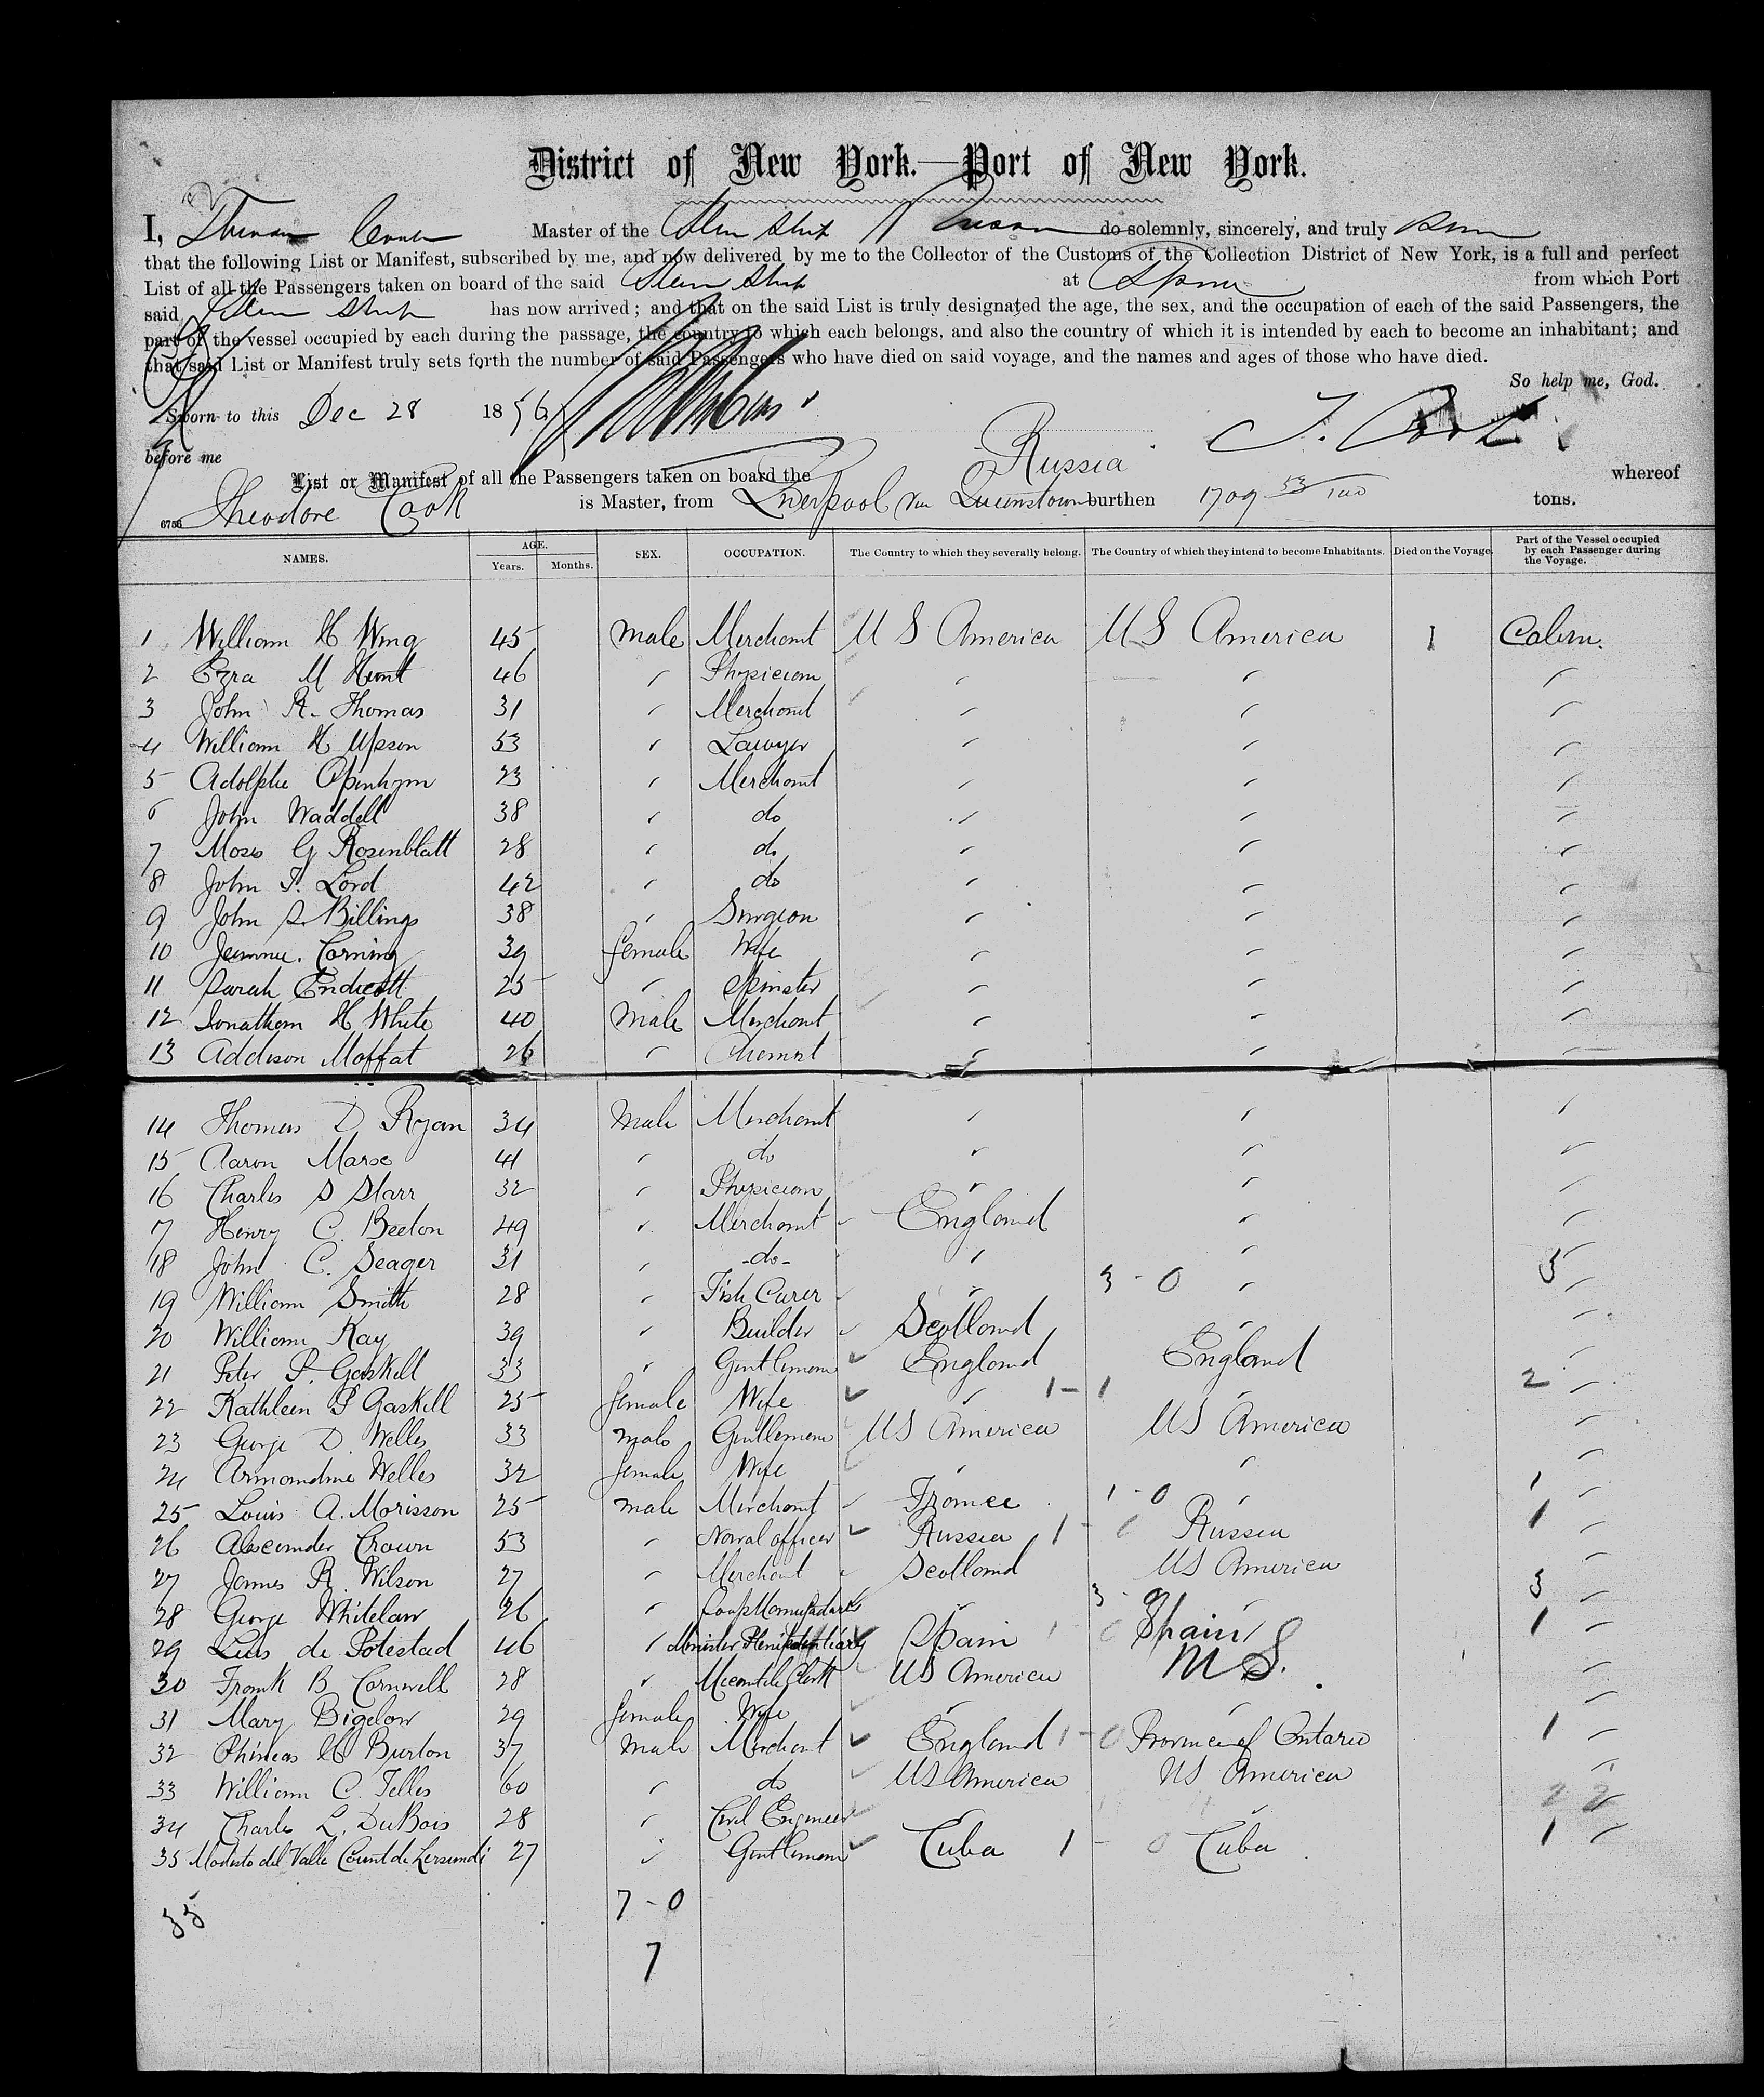 District of New York.—Port of New York.
I, Master of the Steam Ship Russia do solemnly, sincerely, and truly
that the following List or Manifest, subscribed by me, and now delivered by me to the Collector of the Customs of the Collection District of New York, is a full and perfect
List of all the Passengers taken on board of the said Steam Ship at from which Port
said Steam Ship has now arrived; and that on the said List is truly designated the age, the sex, and the occupation of each of the said Passengers, the
part of the vessel occupied by each during the passage, the country to which each belongs, and also the country of which it is intended by each to become an inhabitant; and
that said List or Manifest truly sets forth the number of said Passengers who have died on said voyage, and the names and ages of those who have died.
So help me, God.
Sworn to this Dec 28 18
before me
T. Cook
List or Manifest of all the Passengers taken on board the Russia whereof
6786 Theodore Cook is Master, from Liverpool via Queenstown burthen 1709 53/100 tons.
NAMES. AGE. Years. Months. SEX. OCCUPATION. The Country to which they severally belong. The Country of which they intend to become Inhabitants. Died on the Voyage. Part of the Vessel occupied by each Passenger during the Voyage.
1 William H Wing 45 Male Merchant U S America U S America Cabin.
2 Ezra M Hunt 46 " Physician " " "
3 John R. Thomas 31 " Merchant " " "
4 William H Upson 53 " Lawyer " " "
5 Adolphe Openhym 23 " Merchant " " "
6 John Waddell 38 " do " " "
7 Moses G Rosenblatt 28 " do " " "
8 John T. Lord 42 " do " " "
9 John S. Billings 38 " Surgeon " " "
10 Jeannie Corning 39 female Wife " " "
11 Sarah Endicott 25 " Spinster " " "
12 Jonathan H White 40 Male Merchant " " "
13 Addison Moffat 26 " Chemist " " "
14 Thomas D Ryan 34 Male Merchant " " "
15 Aaron Marse 41 " do " " "
16 Charles S Starr 32 " Physician " " "
17 Henry C. Beeton 49 " Merchant England " "
18 John C. Seager 31 " -do- " " "
19 William Smith 28 " Fish Curer " 3 - 0 " 3 "
20 William Kay 39 " Builder Scotland " "
21 Peter P. Gaskell 33 " Gentleman England England "
22 Kathleen P Gaskell 25 female Wife " 1 - 1 " 2 "
23 George D. Welles 33 male Gentleman US America US America "
24 Armandine Welles 32 female Wife " " "
25 Louis A. Morisson 25 male Merchant France 1 - 0 " 1 "
26 Alexander Crown 53 " Naval officer Russia 1 - 0 Russia 1 "
27 James R. Wilson 27 " Merchant Scotland US America "
28 George Whitelaw 26 " Soap Manufacturer " 3 - 0 " 3 "
29 Luis de Potestad 46 " Minister Plenipotentiary Spain 1 0 Spain 1 "
30 Frank B Cornwell 28 " Mercantile Clerk US America "
31 Mary Bigelow 29 female Wife " " "
32 Phineas H Burton 37 Male Merchant England 1 - 0 Province of Ontario 1 "
33 William C. Telles 60 " do US America US America "
34 Charles L. DuBois 28 " Civil Engineer " " 2 2 "
35 Modesto del Valle Count de Lersundi 27 " Gentleman Cuba 1 - 0 Cuba 1 "
35
7 - 0
7